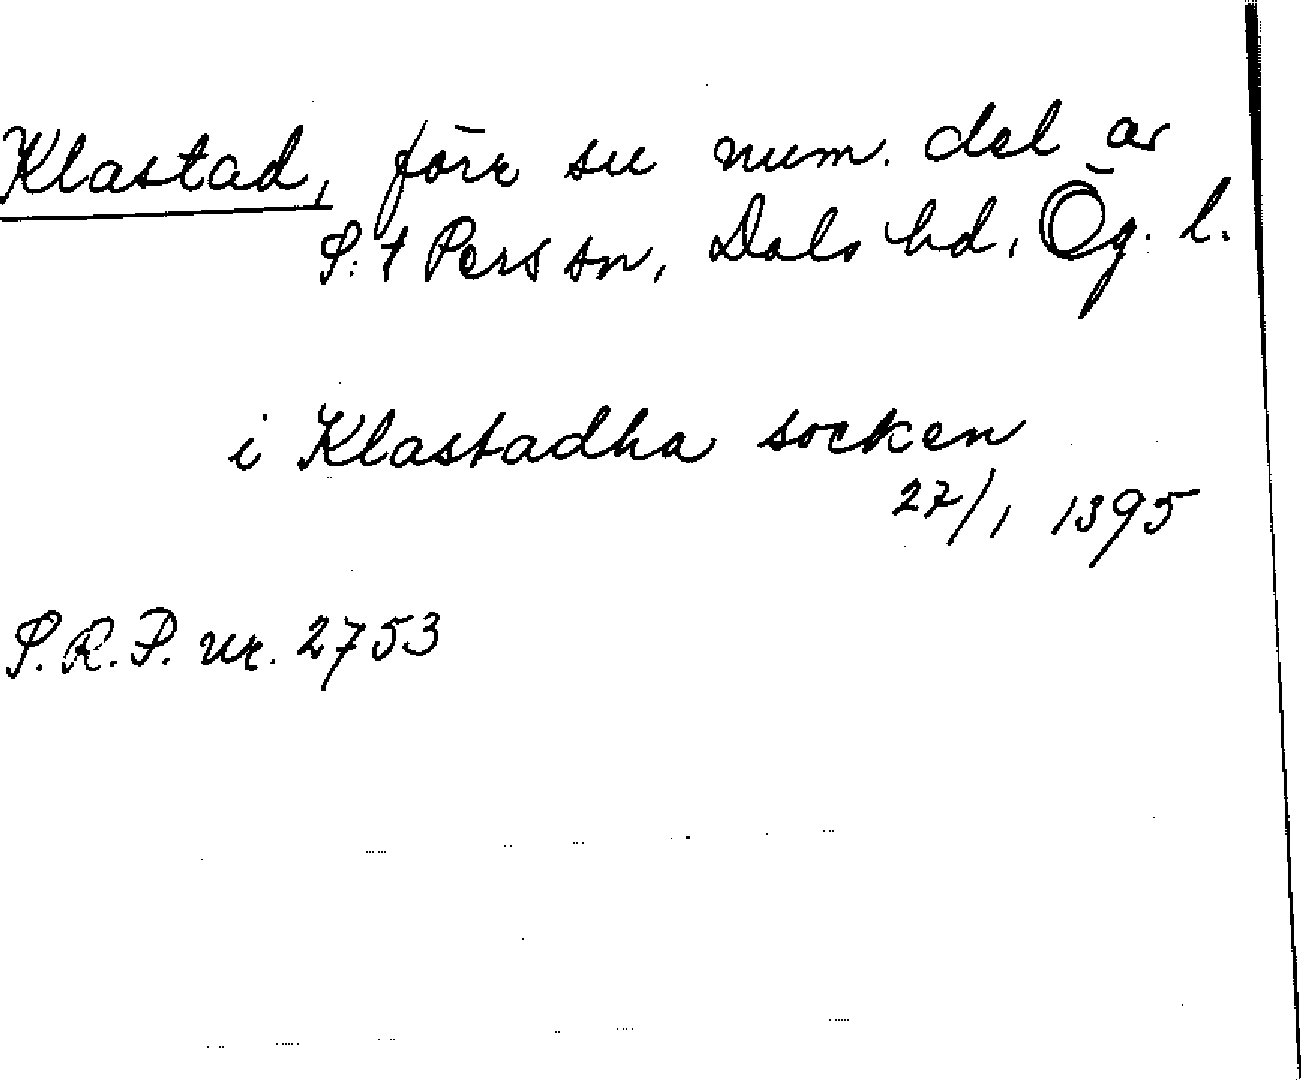 Klastad, förr sn num. del av
S:t Pers sn, Dals hd, Ög. l.
i Klastadha socken
27/1 1395
S.R.P. nr. 2753